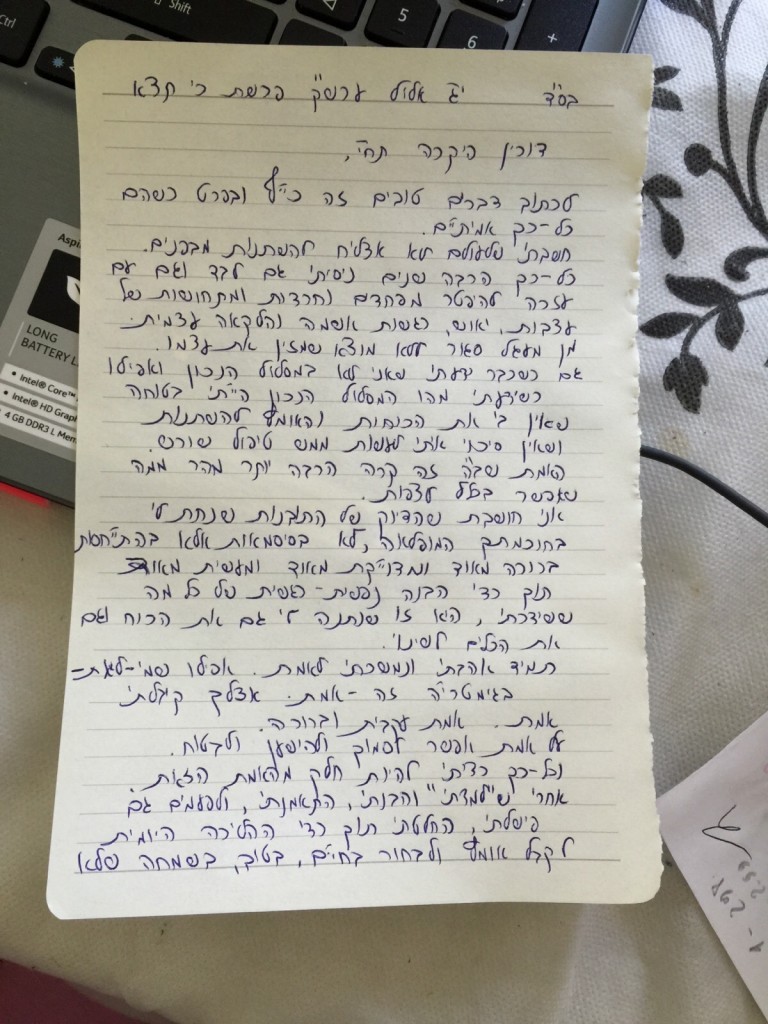 בס"ד י"ג אלול ערש"ק פרשת כי תצא
דורין היקרה תחי',
לכתוב דברים טובים זה כייף ובפרט כשהם
כל-כך אמיתיים.
חשבתי שלעולם לא אצליח להשתנות מבפנים.
כל-כך הרבה שנים ניסיתי גם לבד וגם עם
עזרה להיפטר מפחדים וחרדות ומתחושות של
עצבות, יאוש, רגשות אשמה והלקאה עצמית.
מן מעגל סגור ללא מוצא שמזין את עצמו.
גם כשכבר ידעתי שאני לא במסלול הנכון ואפילו
כשידעתי מהו המסלול הנכון הייתי בטוחה
שאין בי את הכוחות והאומץ להשתנות
ושאין סיכוי אתי לעשות ממש טיפול שורש.
האמת שב"ה זה קרה הרבה יותר מהר ממה
שאפשר בכלל לצפות.
אני חושבת שהדיוק של התובנות שנתת לי
בחוכמתך המופלאה, לא בסיסמאות אלא בהתייחסות
ברורה מאוד ומדוייקת מאוד ומעשית מאוד
תוך כדי הבנה נפשית-רגשית של כל מה
ששידרתי, היא זו שנתנה לי גם את הכוח וגם
את הכלים לשינוי.
תמיד אהבתי ונמשכתי לאמת. אפילו שמי-לאת-
בגימטריה זה -אמת. אצלך קיבלתי
אמת. אמת עקבית וברורה.
על אמת אפשר לסמוך ולהישען ולבטוח.
וכל-כך רציתי להיות חלק מהאמת הזאת.
אחרי ש"למדתי" והבנתי, התאמנתי, ולפעמים גם
פישלתי, החלטתי תוך כדי ההליכה היומית
לקבל אומץ ולבחור בחיים, בטוב, בשמחה שלא
5
6
+
Shift
Ctrl
Aspi
LONG
BATTERY L
Intel® Core™
Intel® HD Graph
4 GB DDR3 L Mem